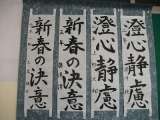 澄心静慮
澄心静慮
新春の決意
新春の決意